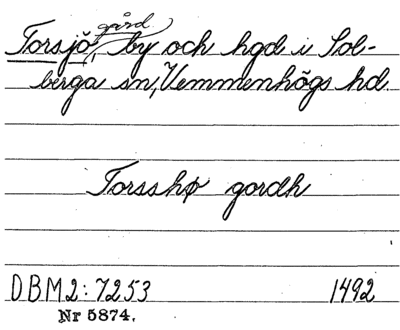 gård
Torsjö, by och hgd i Sol-
berga sn, Vemmenhögs hd.
Torsshø gordh
DBM2:7253 1492
Nr 5874.